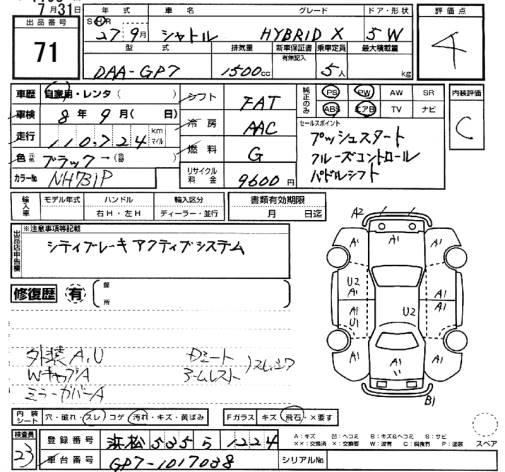 月31日
出品番号
71
年式 車名 グレード ドア・形状
27 9月 シャトル HYBRID X 5W
型式 排気量 新車保証書 乗車定員 最大積載量
有無記入
DAA-GP7 1500cc 5人 kg
評価点
4
車歴 自家用・レンタ( )
車検 8年9月(日)
走行 110,724 km マイル
色 ブラック
カラーNo. NH731P
シフト FAT
冷房 AAC
燃料 G
リサイクル料金 9600円
純正のみ PS PW AW SR
ABS エアB TV ナビ
セールスポイント
プッシュスタート
クルーズコントロール
パドルシフト
内装評価
C
輸入車 モデル年式 ハンドル 輸入区分
右H・左H ディーラー・並行
書類有効期限
月 日迄
出品店申告欄
※注意事項等記載
シティブレーキアクティブシステム
修復歴 有 箇所
外装A,U
WキャブA
ミラーカバーA
アームレスト
A2
A1
A1 A1
U2
A1
A1
A1
U1
U2
A1
A1
A1
A1
B1
内装シート 穴・破れ・スレ コゲ 汚れ・キズ・黄ばみ
Fガラス キズ 飛石・×要す
スペア
検査員
23
登録番号 浜松 535 ら 1224
車台番号 GP7-1017038
シリアルNo.
A:キズ U:ヘコミ B:キズ&ヘコミ S:サビ
××:交換済 X:交換要 W:波有 C:腐食有 P:塗装